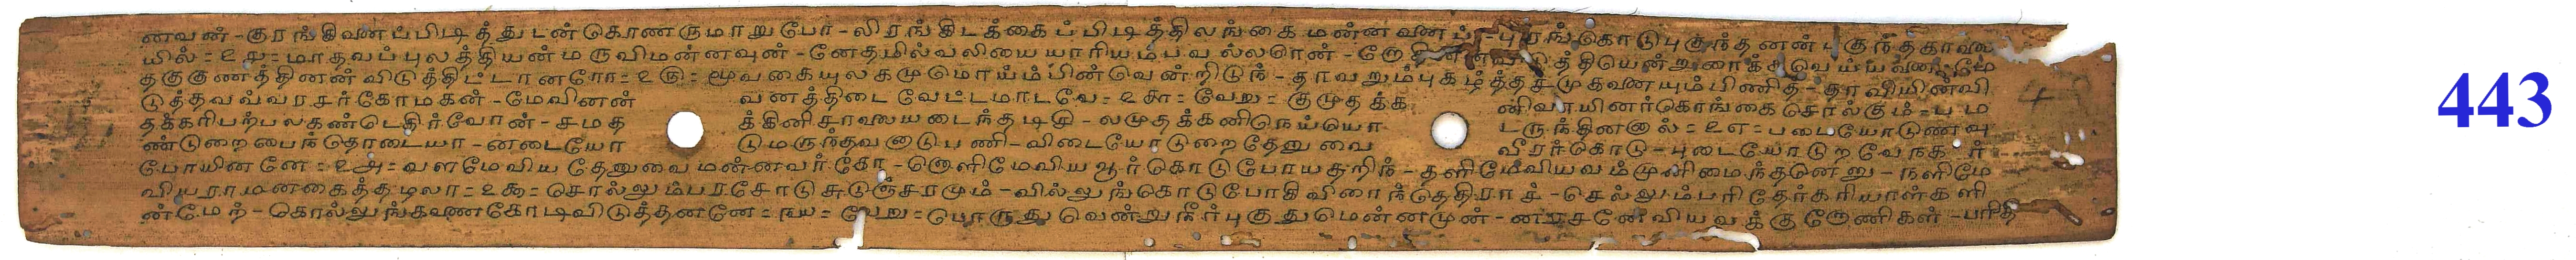 ணவன் - குரங்கினைப்பிடித்துடன்கொணருமாறுபோ - லிரங்கிடக்கைப்பிடித்திலங்கைமன்னவனைப் = புரங்கொடுபுகுந்தனன்புகுந்தகாலை
யில் = ௨௪ = மாதவப்புலத்தியன்மருவிமன்னவுன் - னேதமில்வலியையாரியம்பவல்லரோன் த்தியென்றுரைக்கவெய்யவனுமே
தகுகுணத்தினன்விடுத்திட்டானரோ = ௨௫ = மூவகையுலகமுமொய்ம்பின்வென்றிடுந் - தாவறும்புகழ்த்தசமுகனையும்பிணித் - தாவியின்வி
டுத்தவவ்வரசர்கோமகன் - மேவினன் வனத்திடைவேட்டமாடவே = ௨௬ = வேறு = குமுதக்க னிவாயினர்கொங்கைசெல்கும் = பும
தக்கரிபற்பலகண்டெதிர்வோன் - சமத க்கினிசாலையடைந்தடிகு - லமுதக்கனிநெய்யொ டருந்தினனால் = ௨௭ = படையோடுணவு
ண்டுறைபைந்தொடையா - னடையோ டுமருந்தவனாடுபணி - விடையோடுறைதேனுவை வீரர்கொடு - புடையோடுறவேநகர்
போயினனே = ௨௮ = வளமேவியதேனுவைமன்னவர்கோ - னொளிமேவியஆர்கொடுபோயதறிந் - தளிமேவியவம்முனிமைந்தனெறு - நளிமே
வியராமனகைத்தழலா = ௨௯ = சொல்லும்பரசோடுசுடுஞ்சரமும் - வில்லுங்கொடுபோகிவிரைந்தெதிராச் - செல்லும்பரிதேர்கரியாள்களி
ன்மேற் - கொல்லுங்கணைகோடிவிடுத்தனனே = ௩௰ = வேறு = பொருதுவென்றுநீர்புகுதுமென்னமுன் - னரசனேவியவக்குரோணிகள் - பரித
443